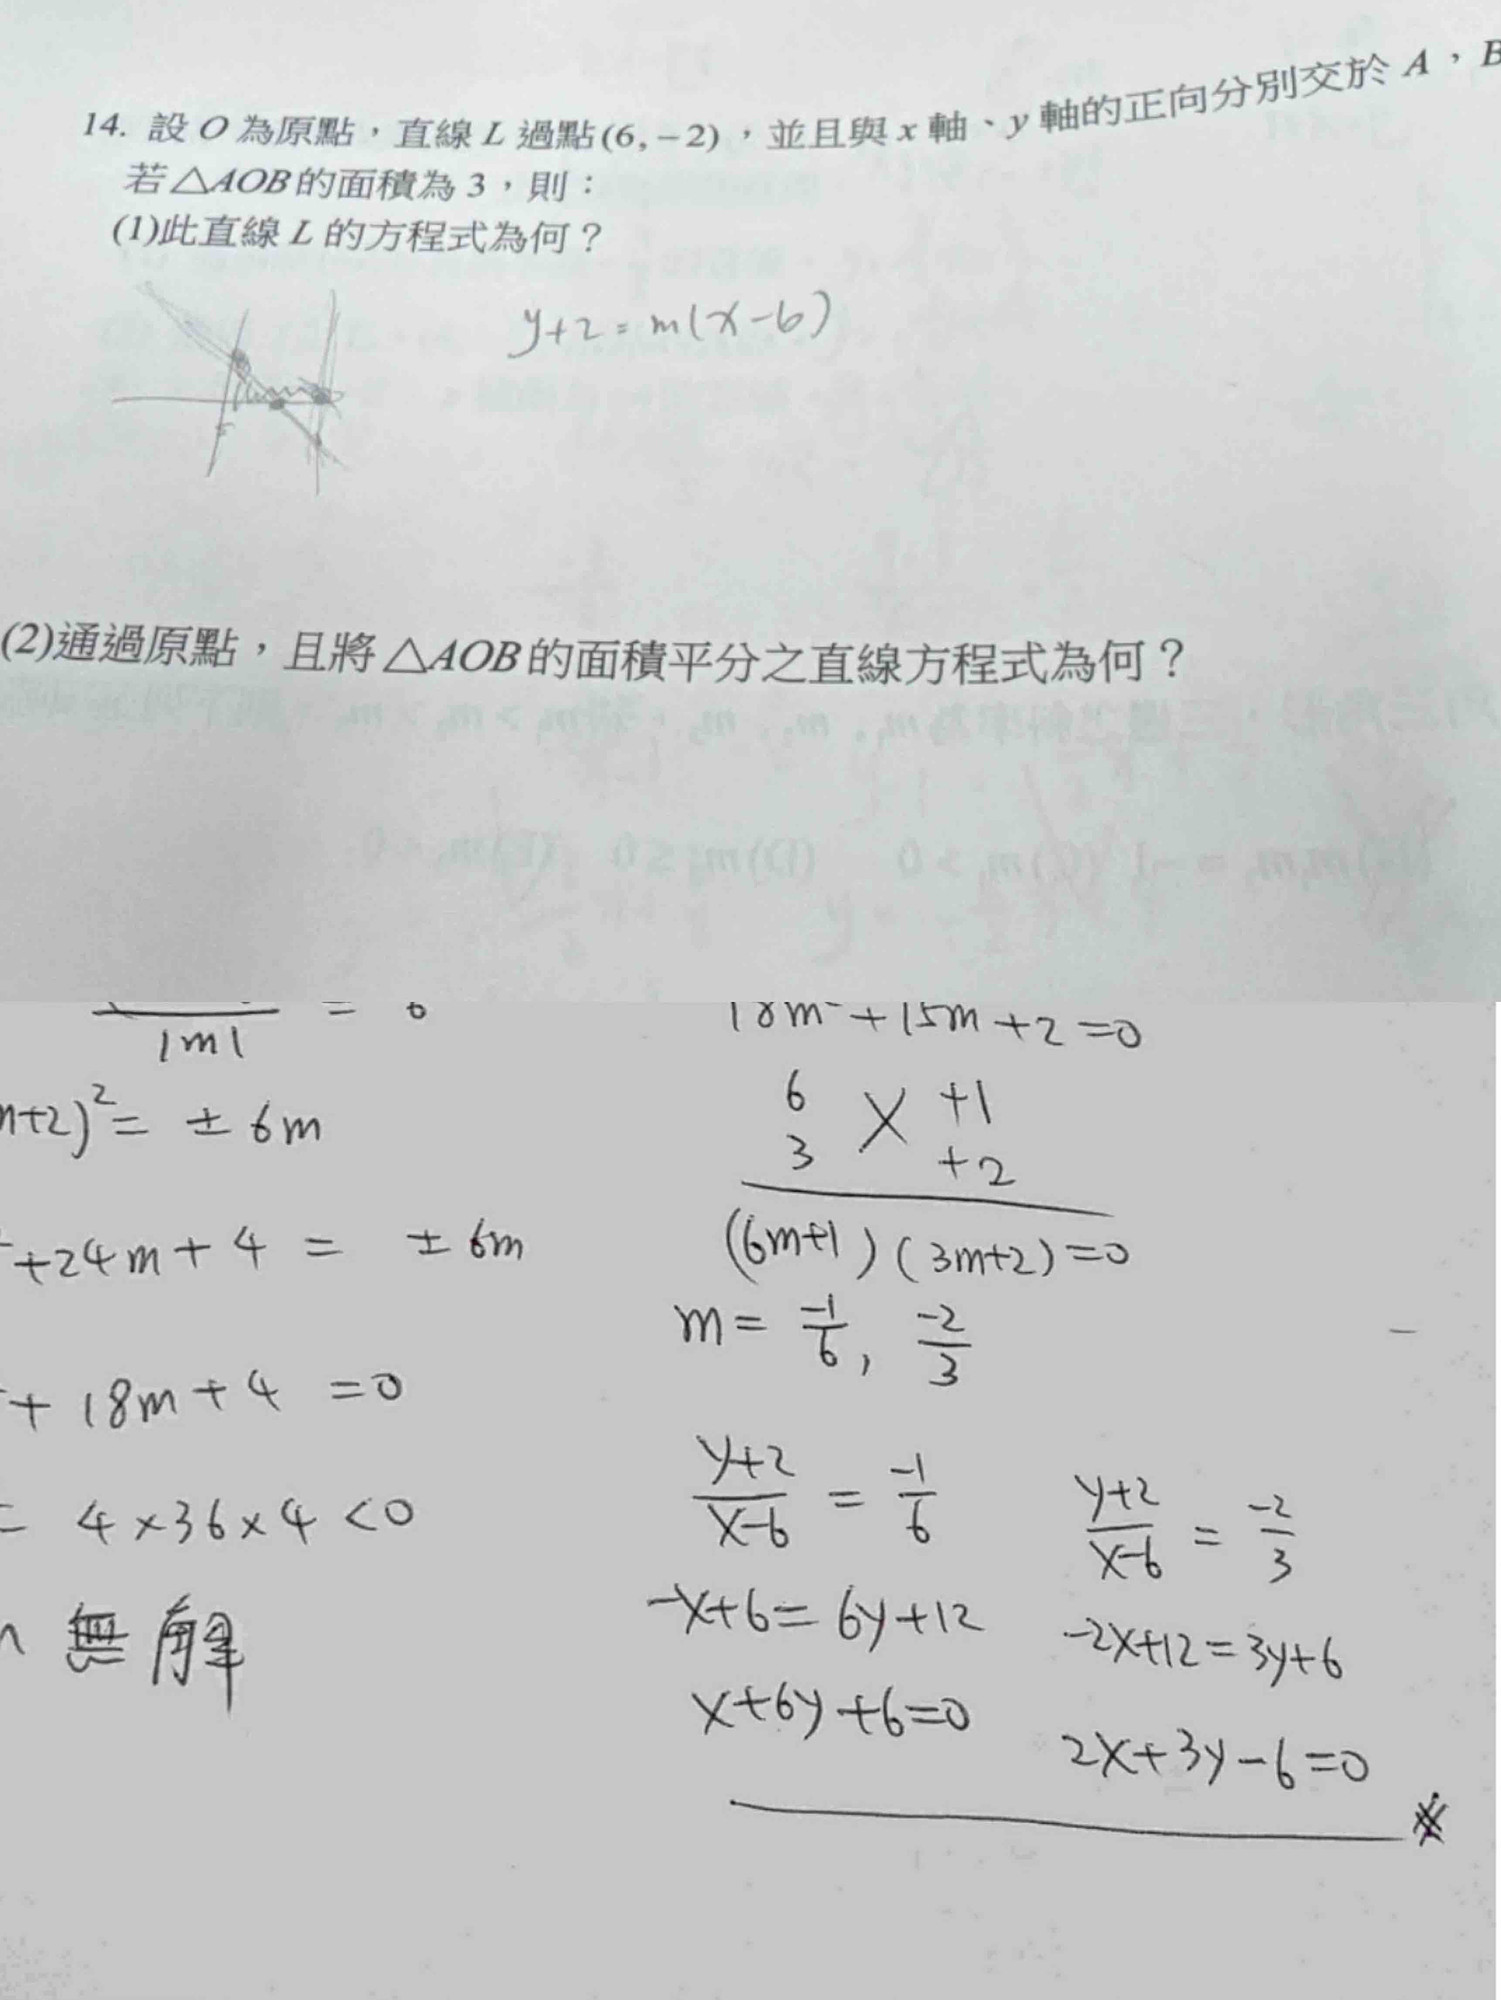 14. 設 O 為原點，直線 L 過點(6, −2)，並且與 x 軸、y 軸的正向分別交於 A，B
若△AOB的面積為 3，則：
(1)此直線 L 的方程式為何？
y+2 = m(x-6)
(2)通過原點，且將△AOB的面積平分之直線方程式為何？
|m| = 6
+2)² = ± 6m
+24m+4 = ± 6m
+ 18m + 4 = 0
= 4×36×4 <0
無解
18m²+15m+2=0
6 X +1
3 +2
(6m+1)(3m+2)=0
m = -1/6, -2/3
y+2/x-6 = -1/6
-x+6=6y+12
x+6y+6=0
y+2/x-6 = -2/3
-2x+12=3y+6
2x+3y-6=0